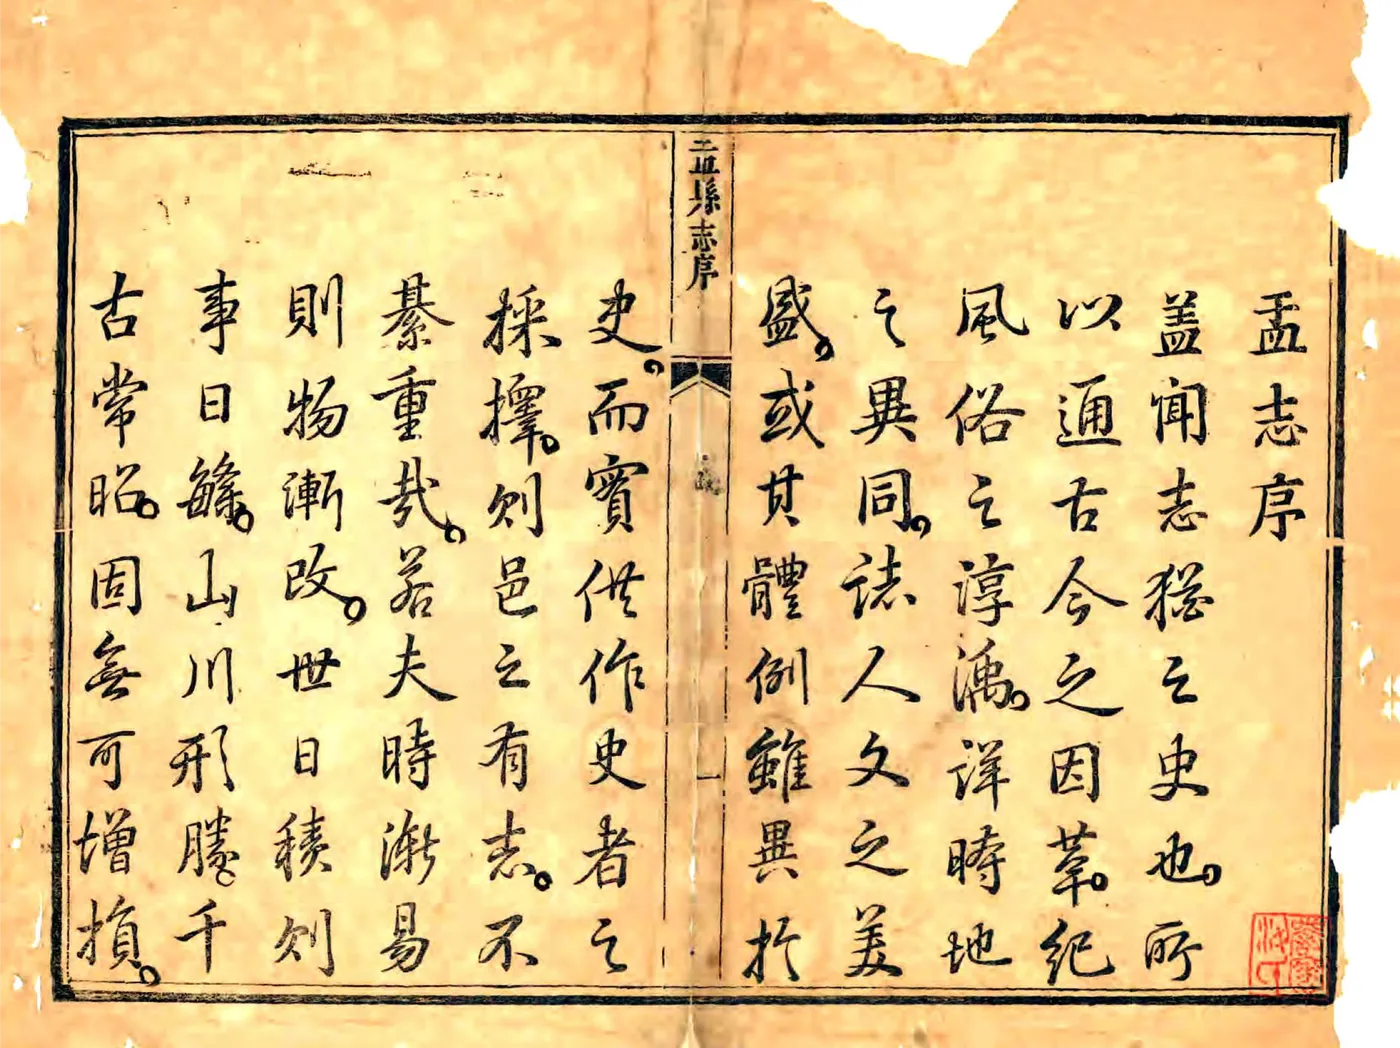 盂志序
盖聞志猶之史也。所
以通古今之因革。紀
風俗之淳漓。詳時地
之異同。誌人文之美
盛。或其體例雖異於
盂縣志序
一
史。而實供作史者之
採擇。則邑之有志。不
綦重哉。若夫時漸易
則物漸改。世日積則
事日繇。山川形勝。千
古常昭。固無可增損。